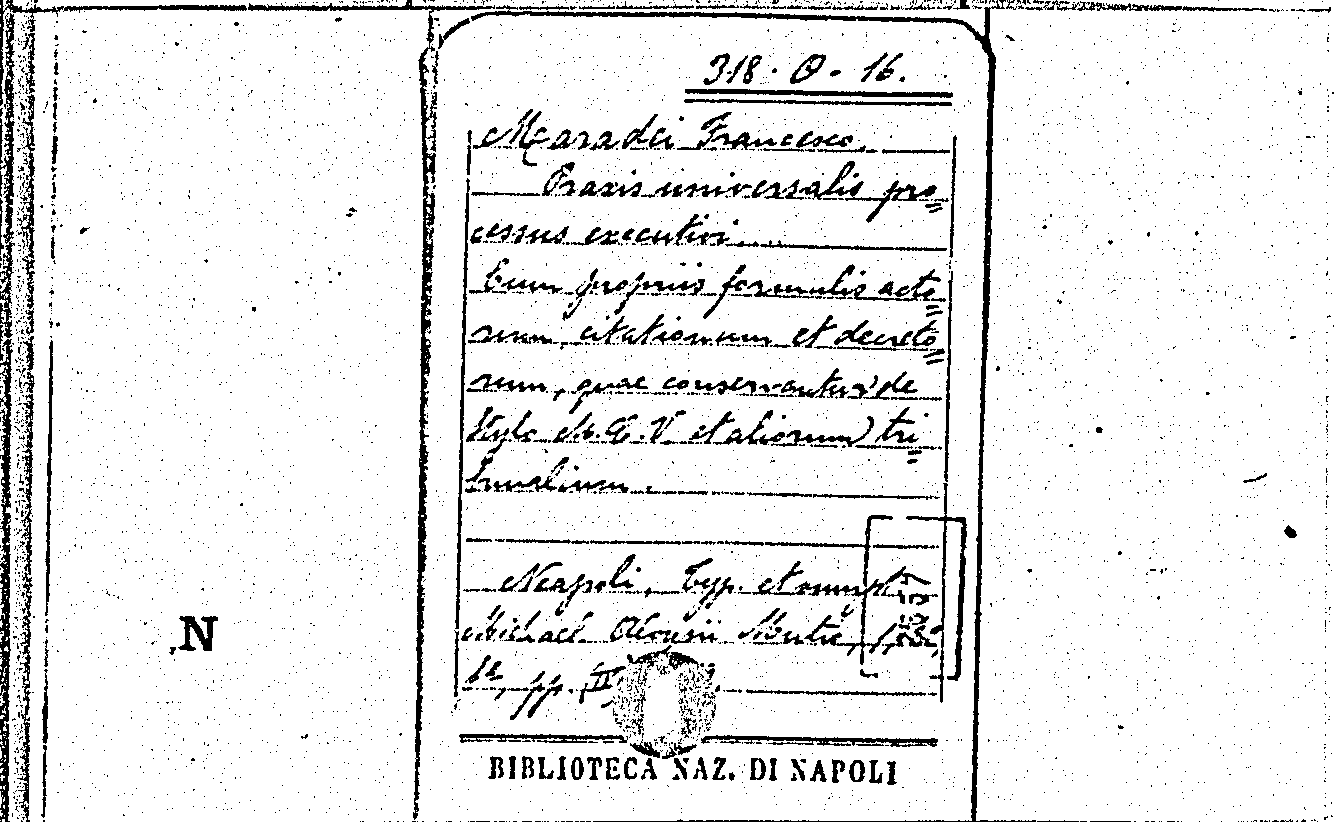 318 · Q · 16.
Maradei Francesco.
Praxis universalis pro=
cessus executivi....
Cum propriis formulis acto=
rum, citationum et decreto=
rum, quae conservantur de
Stylo M. C. V. et aliorum tri=
bunalium.
Neapoli, Typ. et sumpt.
Michael Aloysii Mutio,
pp. II
N
BIBLIOTECA NAZ. DI NAPOLI